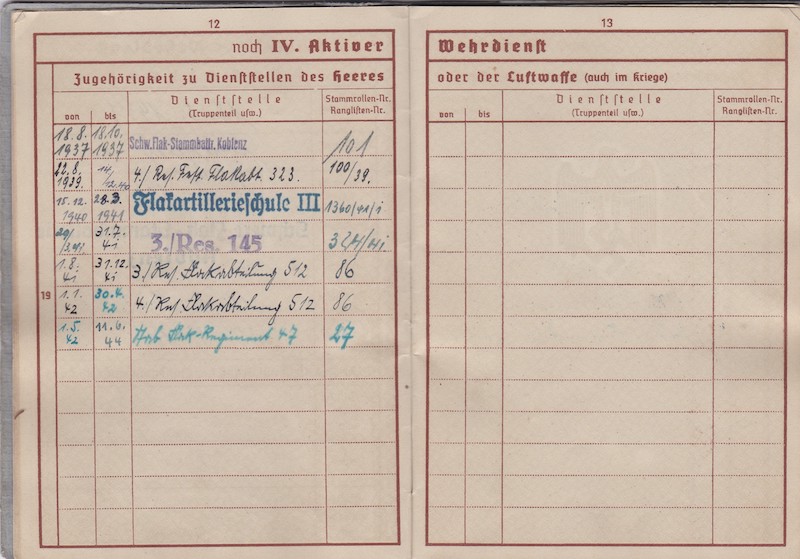 12
noch IV. Aktiver
Zugehörigkeit zu Dienststellen des Heeres
von bis Dienststelle (Truppenteil usw.) Stammrollen-Nr. Ranglisten-Nr.
18.8. 1937 18.10. 1937 Schw. Flak-Stammbattr. Koblenz 101
22.8. 1939. 14/12.40 4./ Res. Fest. Flakabt. 323. 100/39.
15.12. 1940 28.3. 1941 Flakartillerieschule III 1360/41/i
29/3.41 31.7. 41 3./Res. 145 324/41
1.8. 41 31.12. 41 3./ Res. Flakabteilung 512 86
19 1.1. 42 30.4. 42 4./ Res. Flakabteilung 512 86
1.5. 42 11.6. 44 Stab Flak-Regiment 47 27
13
Wehrdienst
oder der Luftwaffe (auch im Kriege)
von bis Dienststelle (Truppenteil usw.) Stammrollen-Nr. Ranglisten-Nr.